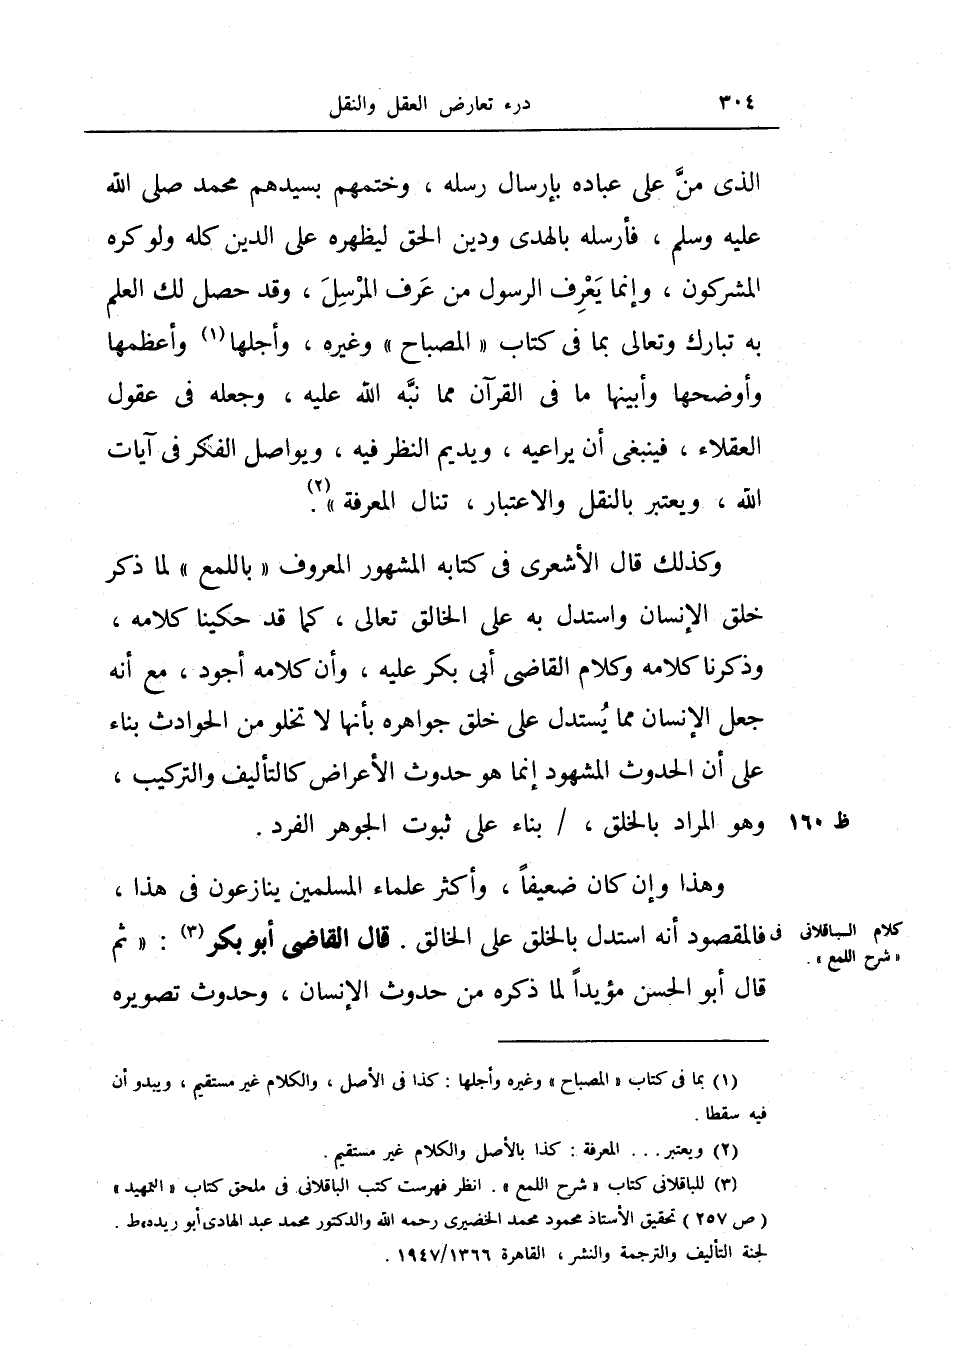 ٣٠٤ درء تعارض العقل والنقل
الذى منَّ على عباده بإرسال رسله ، وختمهم بسيدهم محمد صلى الله
عليه وسلم ، فأرسله بالهدى ودين الحق ليظهره على الدين كله ولو كره
المشركون ، وإنما يَعْرِف الرسول من عَرف المرْسِلَ ، وقد حصل لك العلم
به تبارك وتعالى بما فى كتاب « المصباح » وغيره ، وأجلها (١) وأعظمها
وأوضحها وأبينها ما فى القرآن مما نبَّه الله عليه ، وجعله فى عقول
العقلاء ، فينبغى أن يراعيه ، ويديم النظر فيه ، ويواصل الفكر فى آيات
الله ، ويعتبر بالنقل والاعتبار ، تنال المعرفة » (٢) .
وكذلك قال الأشعرى فى كتابه المشهور المعروف « باللمع » لما ذكر
خلق الإنسان واستدل به على الخالق تعالى ، كما قد حكينا كلامه ،
وذكرنا كلامه وكلام القاضى أبى بكر عليه ، وأن كلامه أجود ، مع أنه
جعل الإنسان مما يُستدل على خلق جواهره بأنها لا تخلو من الحوادث بناء
على أن الحدوث المشهود إنما هو حدوث الأعراض كالتأليف والتركيب ،
وهو المراد بالخلق ، / بناء على ثبوت الجوهر الفرد .
ظ ١٦٠
وهذا وإن كان ضعيفاً ، وأكثر علماء المسلمين ينازعون فى هذا ،
فالمقصود أنه استدل بالخلق على الخالق . قال القاضى أبو بكر (٣) : « ثم
كلام الباقلانى فى
« شرح اللمع » .
قال أبو الحسن مؤيداً لما ذكره من حدوث الإنسان ، وحدوث تصويره
(١) بما فى كتاب « المصباح » وغيره وأجلها : كذا فى الأصل ، والكلام غير مستقيم ، ويبدو أن
فيه سقطا .
(٢) ويعتبر . . . المعرفة : كذا بالأصل والكلام غير مستقيم .
(٣) للباقلانى كتاب « شرح اللمع » . انظر فهرست كتب الباقلانى فى ملحق كتاب « التمهيد »
( ص ٢٥٧ ) تحقيق الأستاذ محمود محمد الخضيرى رحمه الله والدكتور محمد عبد الهادى أبو ريده ، ط .
لجنة التأليف والترجمة والنشر ، القاهرة ١٩٤٧/١٣٦٦ .